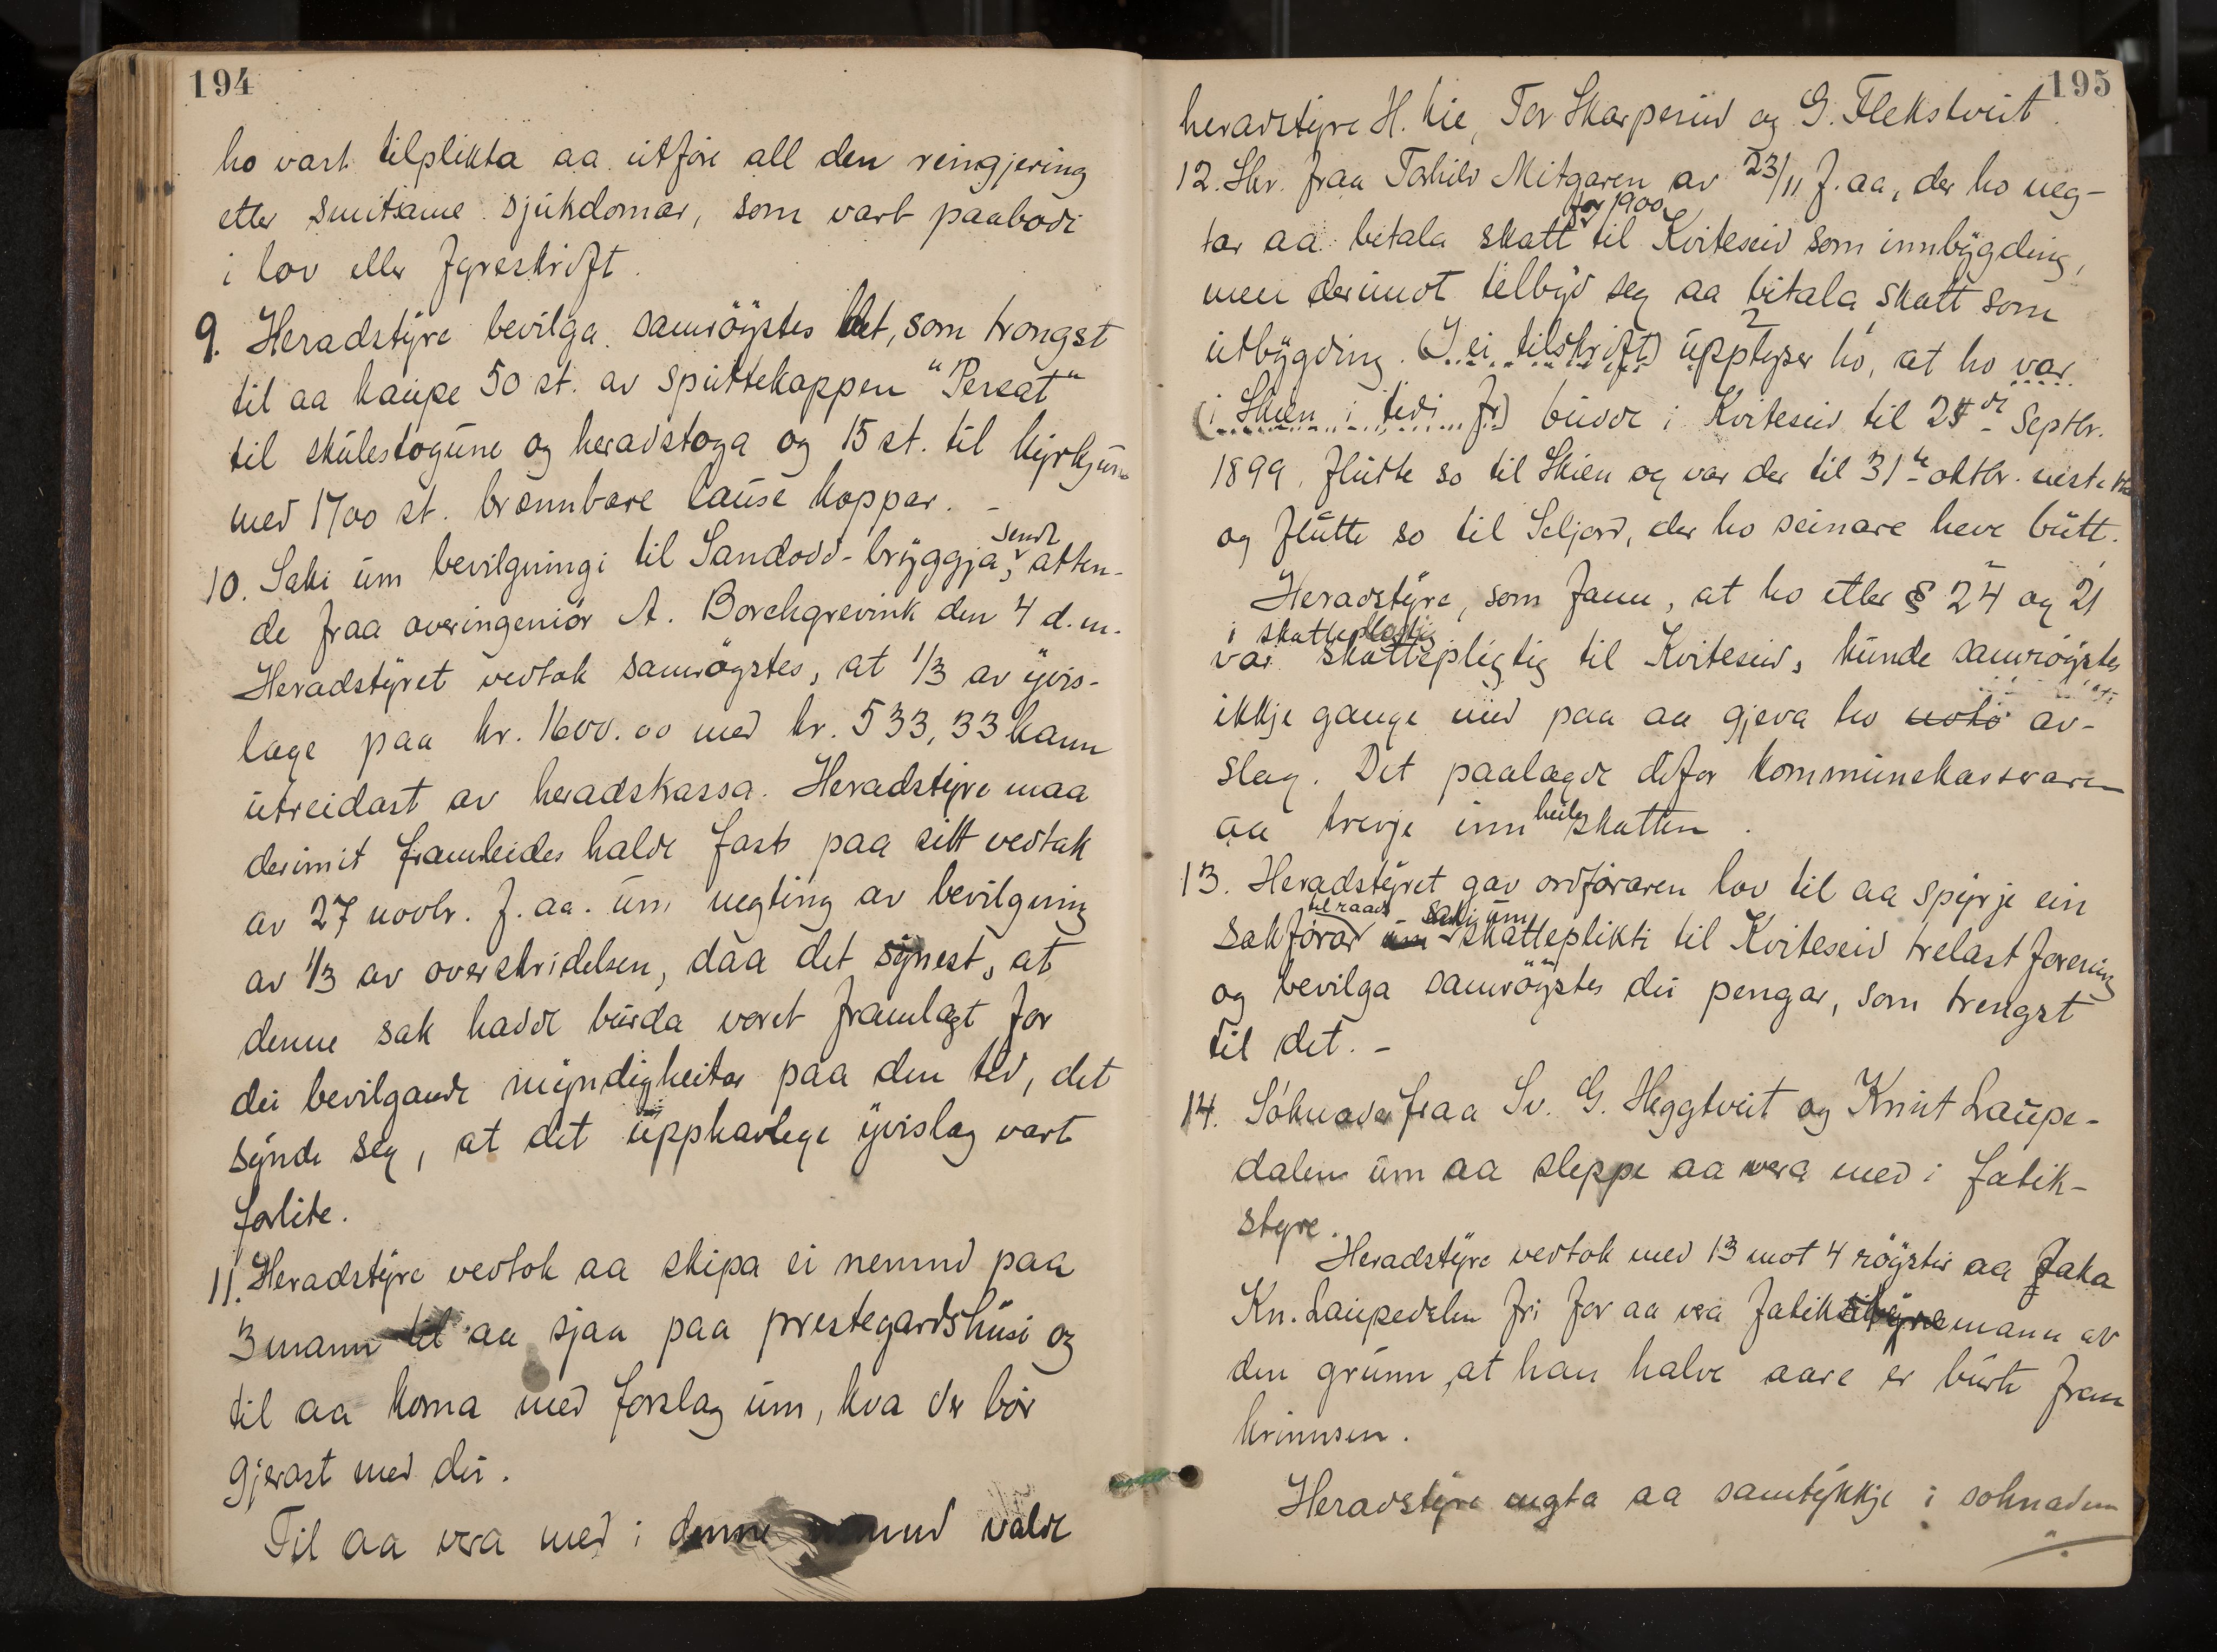 194
ho vart tilplikta aa utföre all den reingjering
etter smitsame sjukdomar, som vart paabodi
i lov eller fyreskrift.
9. Heradstyre bevilga samröystes det, som trongst
til aa kaupe 50 st. av sputtekoppen "Pereat"
til skulestogune og heradstoga og 15 st. til kyrkjune
med 1700 st. brennbare lause koppar. -
10. Saki um bevilgningi til Sandodd-bryggja, sendt atten-
de fraa overingeniör A. Borchgrevink den 4 d.m.
Heradstyret vedtok samröystes, at 1/3 av yvis-
lage paa kr. 1600.00 med kr. 533,33 kann
utreidast av heradskassa. Heradstyre maa
derimit framleides halde fast paa sitt vedtak
av 27 novbr. f. aa. um negting av bevilgning
av 1/3 av overskridelsen, daa det synest, at
denne sak hadde burda voret framlagt for
dei bevilgande myndigheitar paa den tid, det
synde seg, at det upphavlege yvislag vart
forlite.
11. Heradstyre vedtok aa skipa ei nemnd paa
3 mann til aa sjaa paa prestegardshusi og
til aa koma med forslag um, kva der bör
gjerast med dei.
Til aa vera med i denne nemnd valde
195
heradstyre H. Lie, Tor Skarperud og G. Flekstveit.
12. Skr. fraa Torhild Mitgaren av 23/11 f. aa, der ho neg-
for 1900
tar aa betala skatt til Kviteseid som innbygding,
men derimot tilbyd seg aa betala skatt som
utbygding. (I ei tilskrift) upplyser ho, at ho var
(i Skien i tidi fr) budde i Kviteseid til 25de Septbr.
1899, flutte so til Skien og var der til 31te oktbr. neste
og flutte so til Seljord, der ho seinare heve butt.
Heradstyre, som fann, at ho etter § 24 og 21
i skattepligtig
var skattepligtig til Kviteseid, kunde samröystes
ikkje gange med paa aa gjeva ho av-
slag. Det paalagde difor kommunekasseraren
aa krevje inn heile skatten.
13. Heradstyret gav ordföraren lov til aa spyrje ein
til raads saki um
Sakförar um skatteplikti til Kviteseid trelastforening
og bevilga samröystes dei pengar, som trengst
til det. -
14. Söknader fraa Sv. G. Heggtveit og Knut Laupe-
dalen um aa sleppe aa vera med i fatik-
styre.
Heradstyre vedtok med 13 mot 4 röyster aa faka
Kn. Laupedalen fri for aa vera fatikstyremann av
den grunn, at han halve aare er burte fraa
krinnsen.
Heradstyre negta aa samtykkje i soknaden